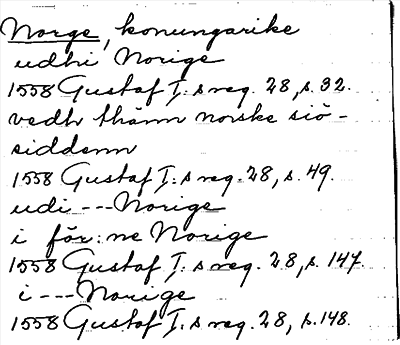 Norge, konungarike
udhi Norige
1558 Gustaf I:s reg. 28, s. 32.
vedh thänn norske siö-
siddenn
1558 Gustaf I:s reg. 28, s. 49.
udi --- Norige
i för:ne Norige
1558 Gustaf I:s reg. 28, s. 147.
i --- Norige
1558 Gustaf I:s reg. 28, s. 148.